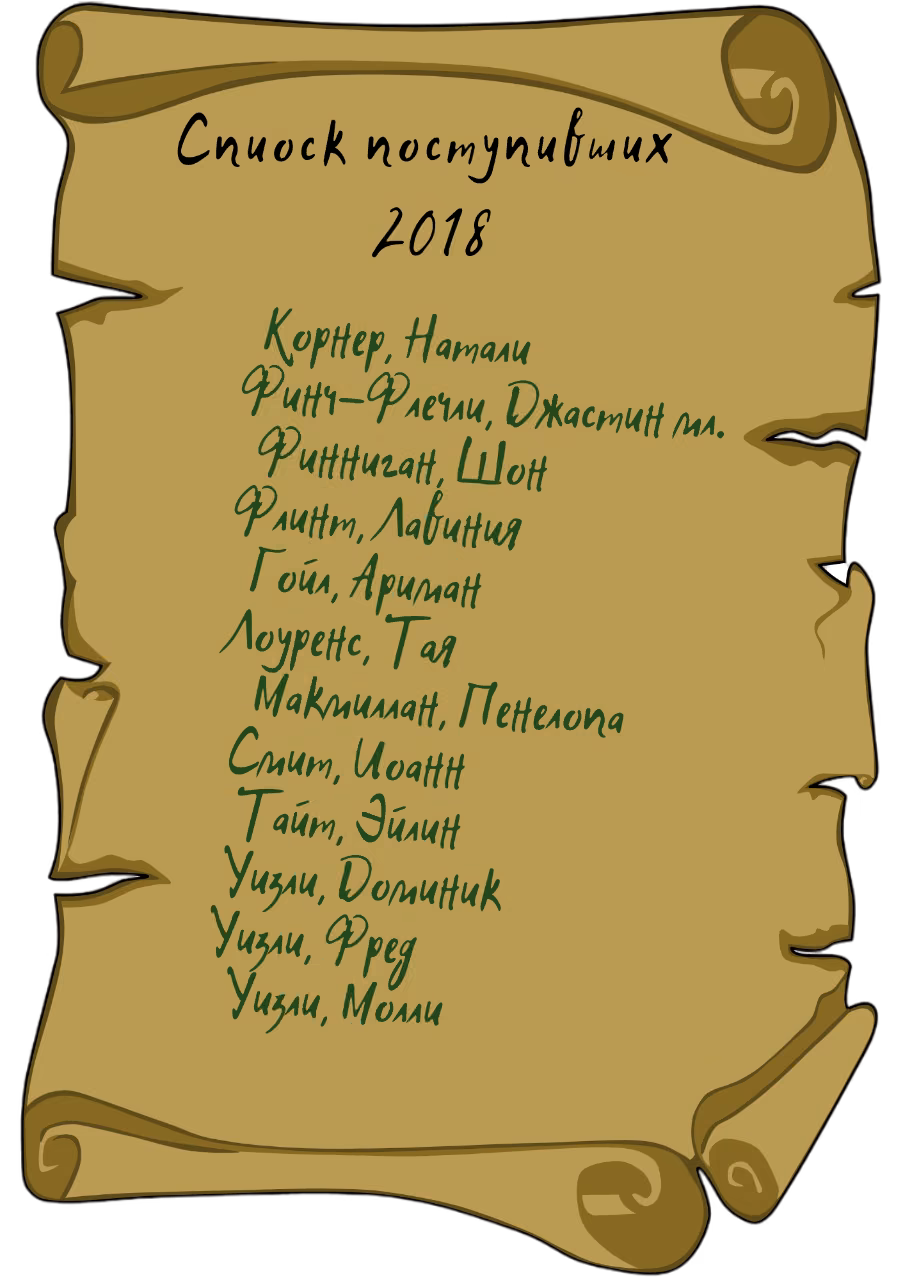 Спиоск поступивших
2018
Корнер, Натали
Финч-Флечли, Джастин мл.
Финниган, Шон
Флинт, Лавиния
Гойл, Ариман
Лоуренс, Тая
Макмиллан, Пенелопа
Смит, Иоанн
Тайт, Эйлин
Уизли, Доминик
Уизли, Фред
Уизли, Молли